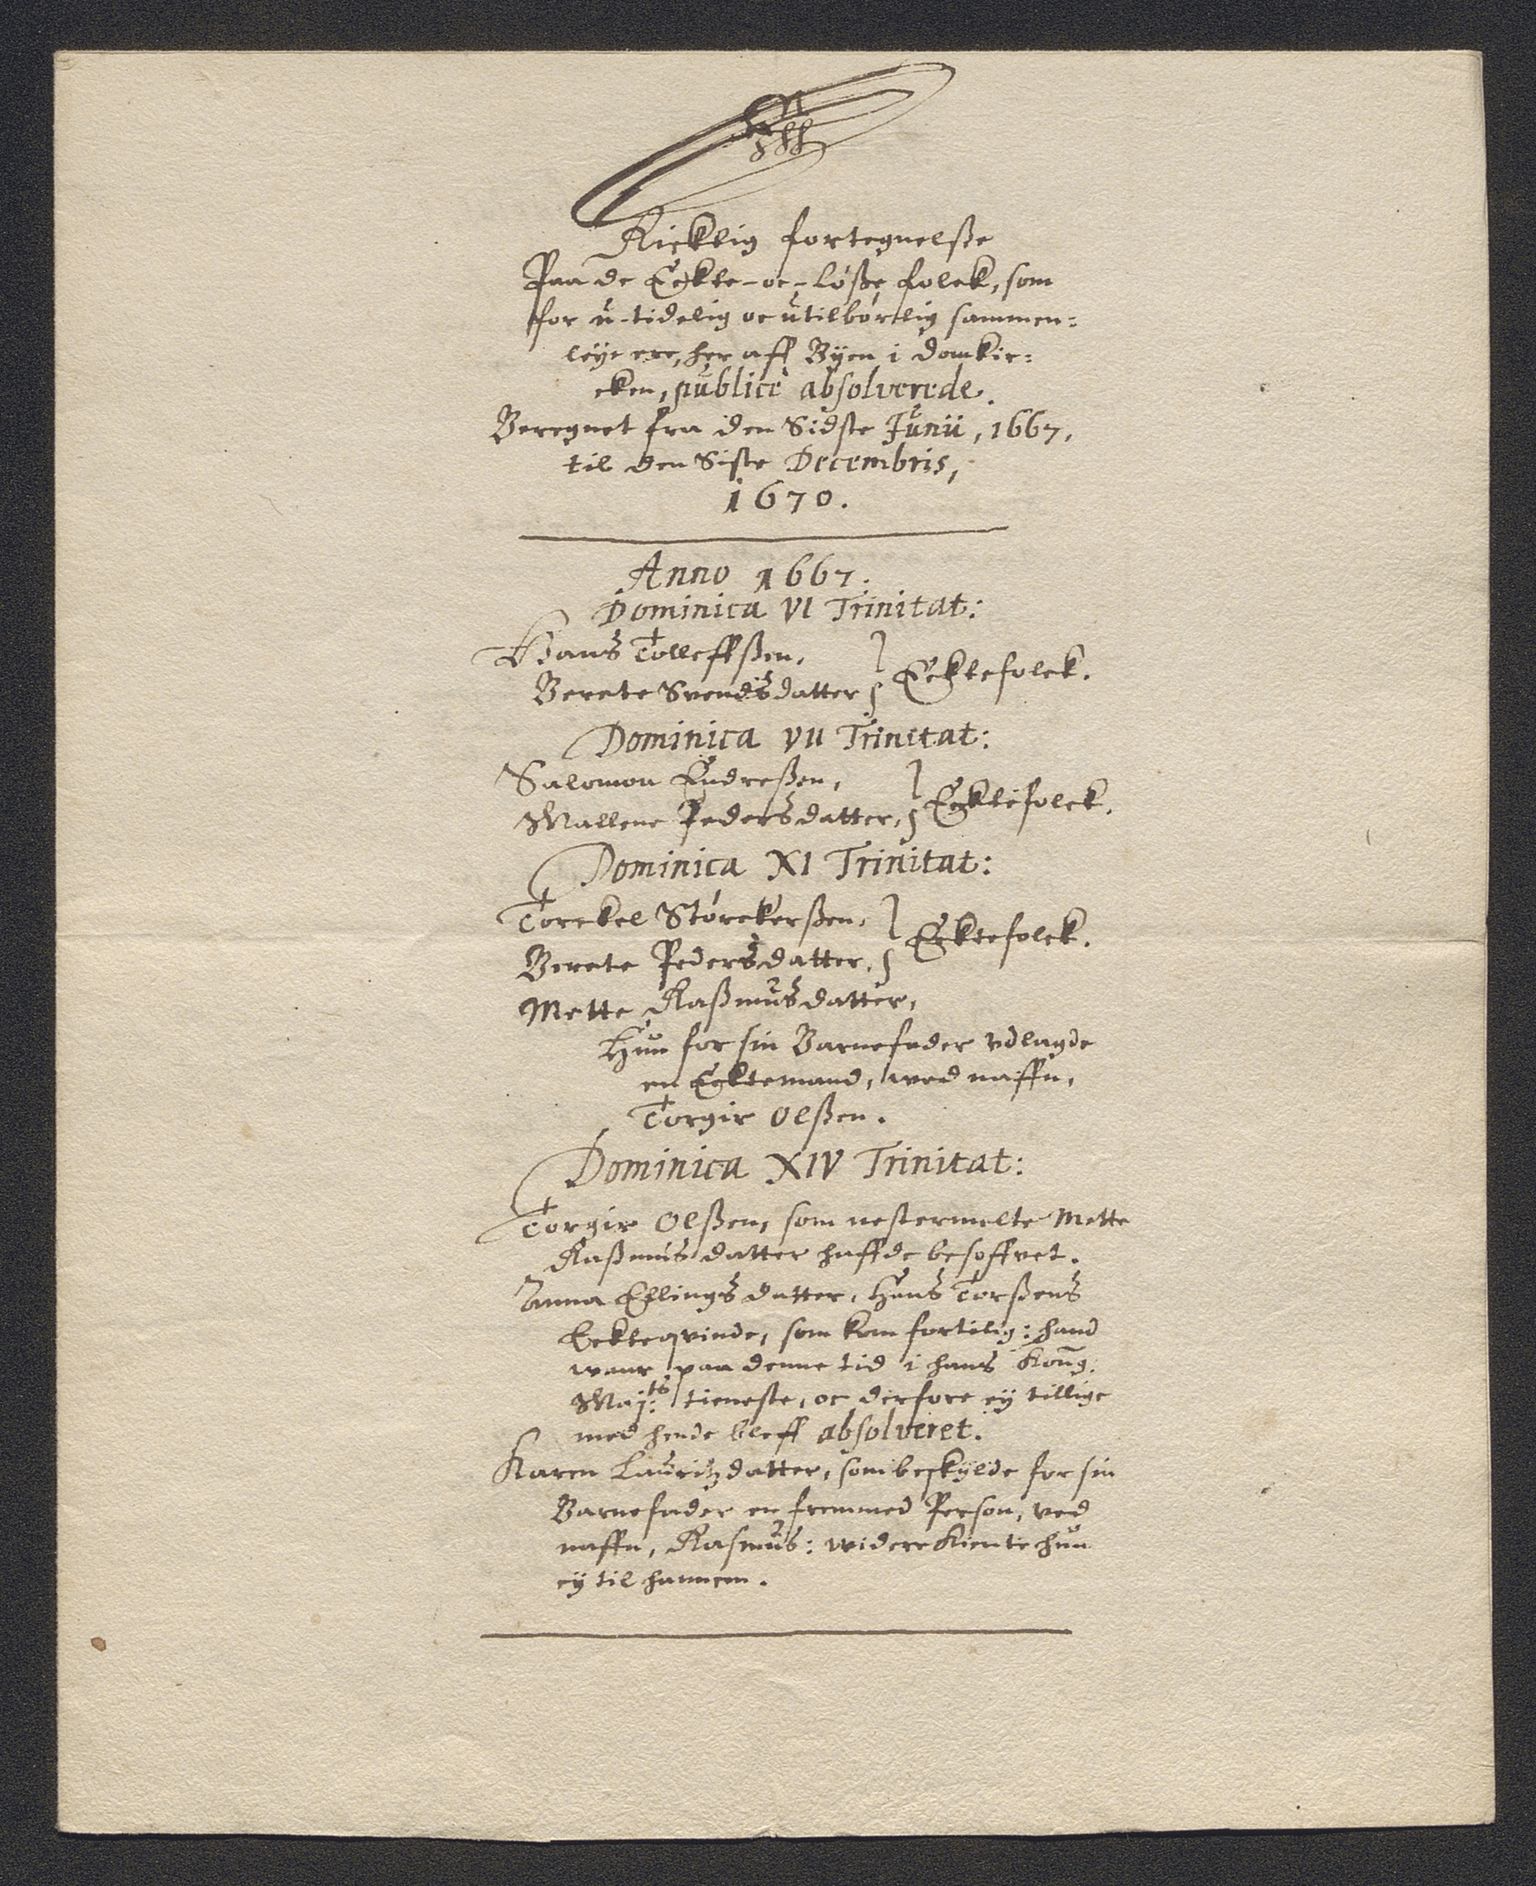 Ricktig fortegnelße
Paa de Eckte-oc-Løße folck, som
for u-tidelig oc utilbørlig sammen=
leye ere, her aff Byen i Domkir=
cken, publicè absolverede.
Beregnet fra den Sidste Junii, 1667,
til den Siste Decembris,
1670.
Anno 1667.
Dominica VI Trinitat:
Hans Tolleffßen,
Berete Svendsdatter } Ecktefolck.
Dominica VII Trinitat:
Salomon Endreßen,
Mallene Pedersdatter, } Ecktefolck.
Dominica XI Trinitat:
Torckel Størckerßen,
Berete Pedersdatter, } Ecktefolck.
Mette Raßmusdatter,
Hun for sin Barnefader vdlagde
en Ecktemand, wed naffn,
Torgir Olßen.
Dominica XIV Trinitat:
Torgir Olßen, som nestermelte Mette
Raßmusdatter haffde besoffvet.
Anna Ellingsdatter, Hans Torßens
Eckteqvinde, som kom fortilig: hand
waar paa denne tid i hans Kong:
Maj:ts tieneste, oc derfore ey tillige
med hende bleff absolveret.
Karen Lauritzdatter, som beskylde for sin
Barnefader en fremmed Person, ved
naffn, Rasmus: widere kiente hun
ey til hannem.